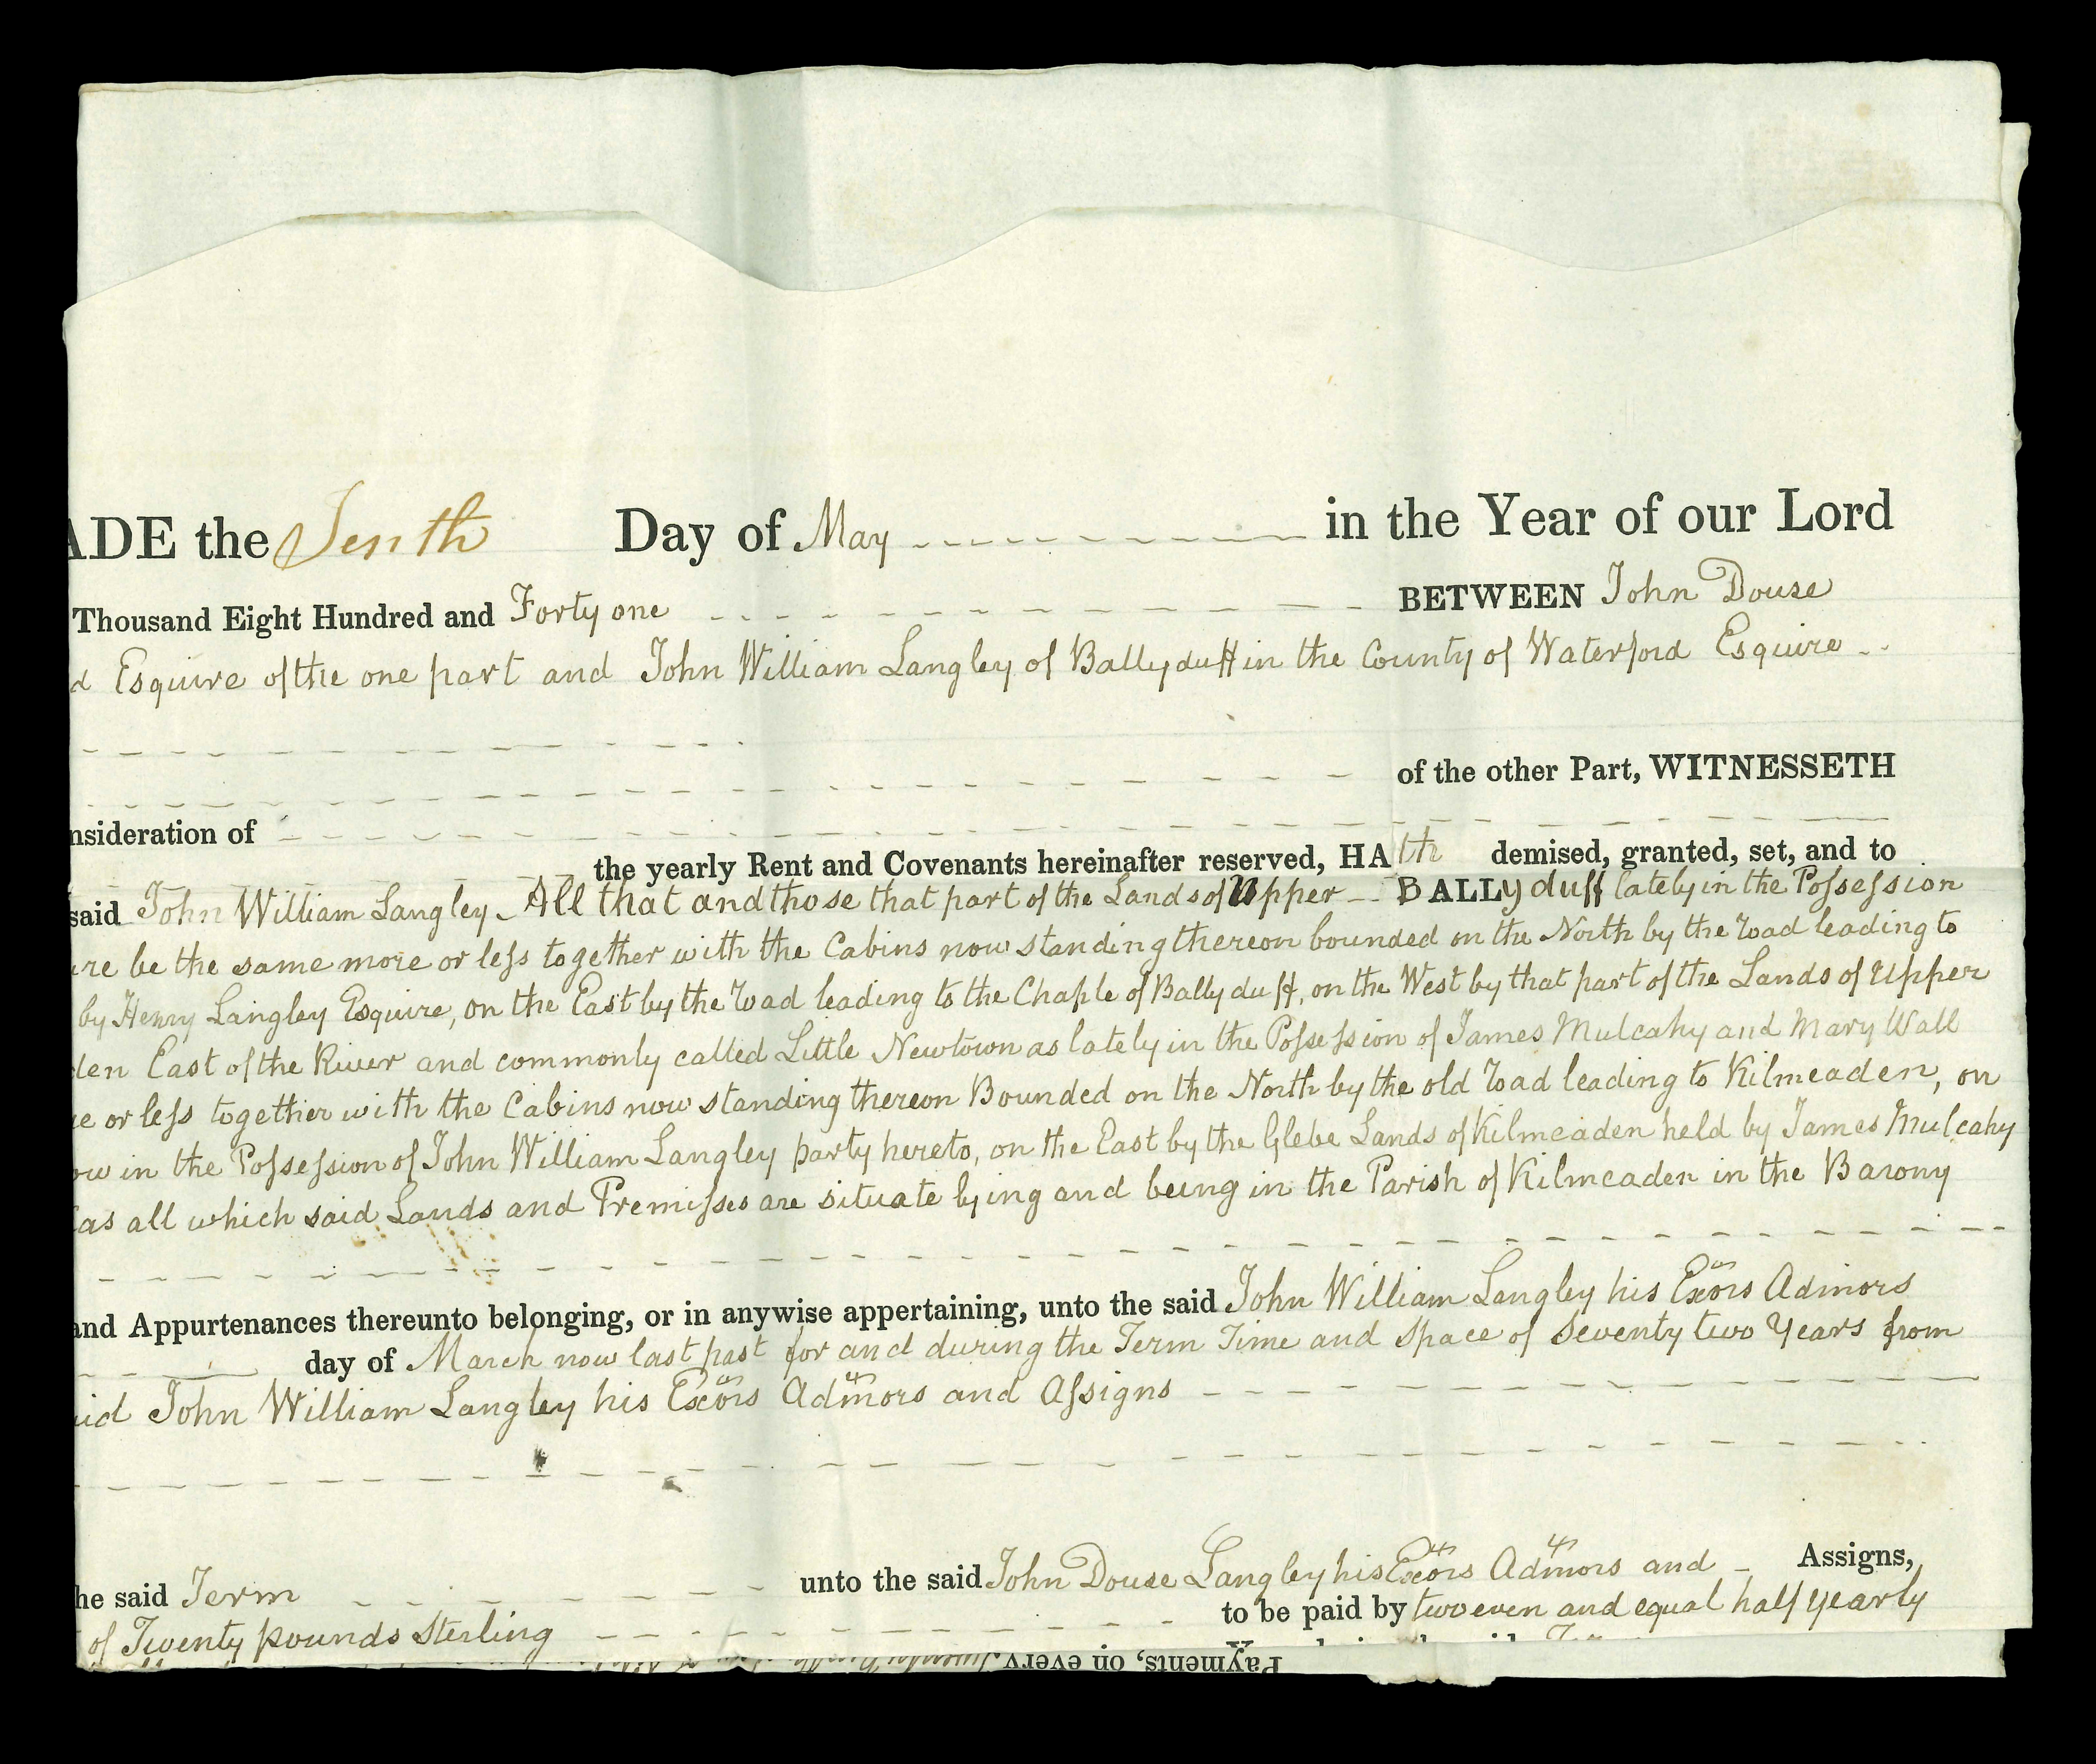 ADE the Tenth Day of May in the Year of our Lord
Thousand Eight Hundred and Forty one BETWEEN John Douse
d Esquire of the one part and John William Langley of Ballyduff in the County of Waterford Esquire
of the other Part, WITNESSETH
nsideration of
the yearly Rent and Covenants hereinafter reserved, HAth demised, granted, set, and to
said John William Langley All that and those that part of the Lands of Upper BALLyduff lately in the Possession
re be the same more or less together with the Cabins now standing thereon bounded on the North by the road leading to
by Henry Langley Esquire, on the East by the road leading to the Chaple of Ballyduff, on the West by that part of the Lands of Upper
den East of the River and commonly called Little Newtown as lately in the Possession of James Mulcahy and Mary Wall
e or less together with the Cabins now standing thereon Bounded on the North by the old road leading to Kilmeaden, on
ow in the Possession of John William Langley party hereto, on the East by the Glebe Lands of Kilmeaden held by James Mulcahy
as all which said Lands and Premisses are situate lying and being in the Parish of Kilmeaden in the Barony
and Appurtenances thereunto belonging, or in anywise appertaining, unto the said John William Langley his Exors Admors
day of March now last past for and during the Term Time and Space of Seventy two Years from
id John William Langley his Exors Admors and Assigns
he said Term unto the said John Douse Langley his Exors Admors and Assigns,
of Twenty pounds Sterling to be paid by two even and equal half yearly
Payments, on every